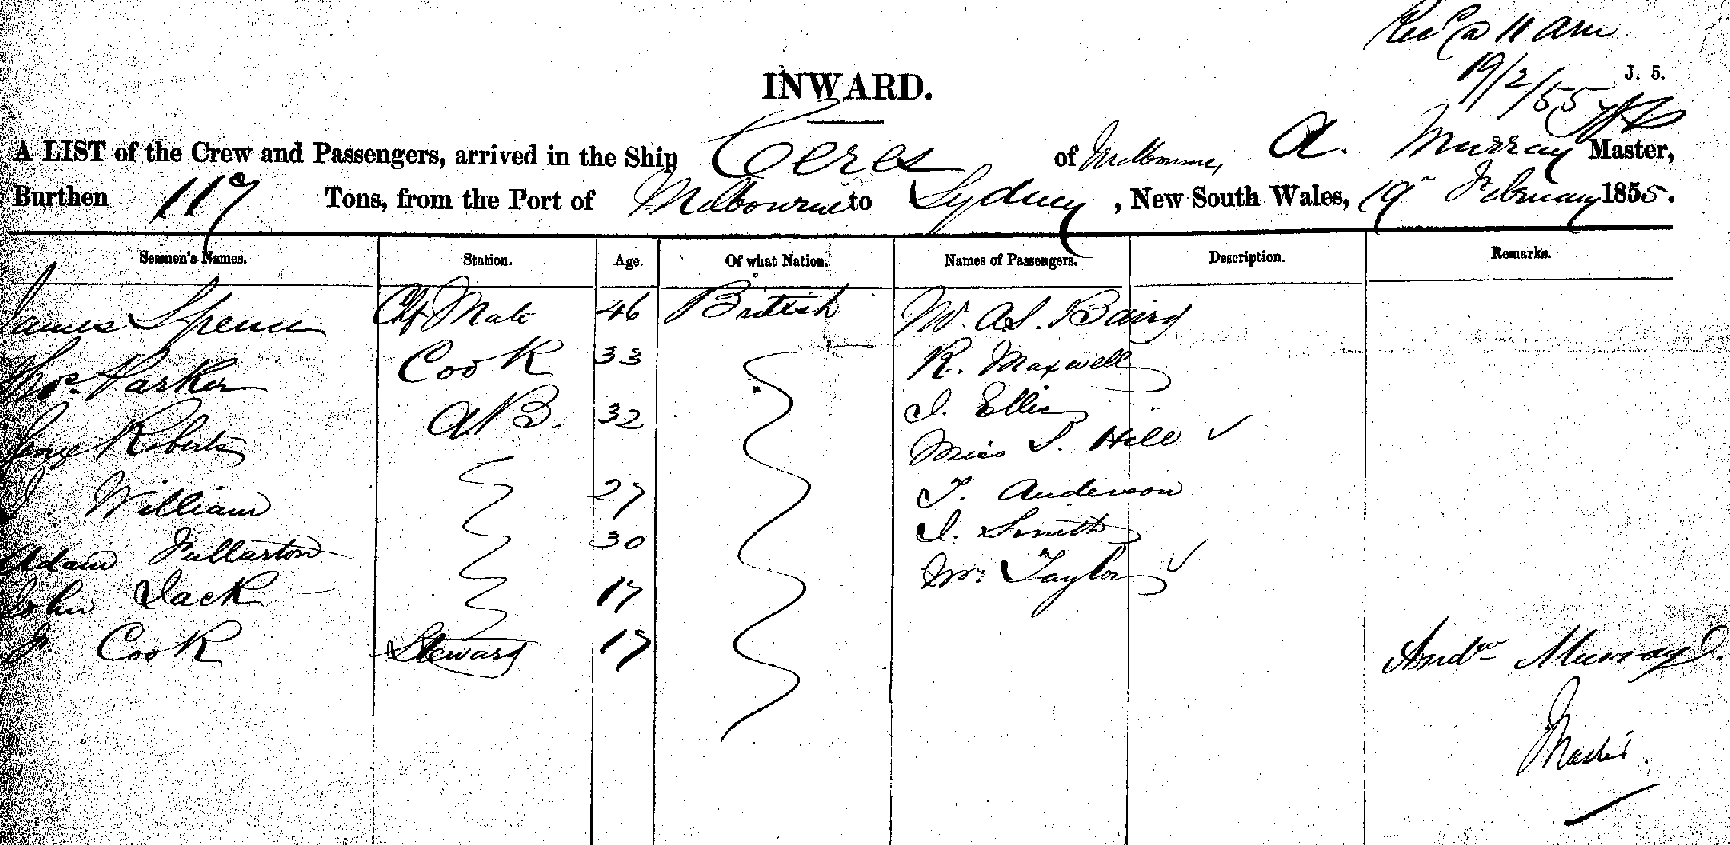 Recd @ 11 am
19/2/55
J. 5.
INWARD.
A LIST of the Crew and Passengers, arrived in the Ship Ceres of Melbourne, A. Murray Master,
Burthen 117 Tons, from the Port of Melbourne to Sydney, New South Wales, 19 February 1855.
Seamen's Names. Station. Age. Of what Nation. Names of Passengers. Description. Remarks.
James Spence Ch Mate 46 British W. Baird
Thos Parker Cook 33 R. Maxwell
George Roberts AB. 32 J. Ellis
Miss S. Hill ✓
J William 27 T. Anderson
Adam Fullarton 30 J. Smith
John Jack 17 Mr Taylor ✓
J Cook Steward 17 Andw Murray
Master